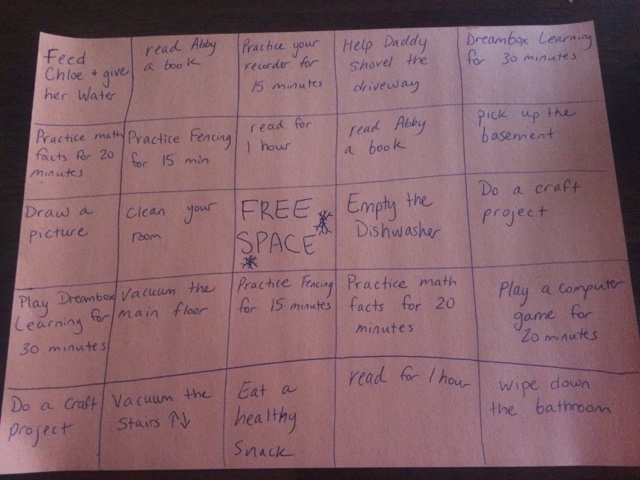 Feed
Chloe + give
her Water
read Abby
a book
Practice your
recorder for
15 minutes
Help Daddy
shovel the
driveway
Dreambox Learning
for 30 minutes
Practice math
facts for 20
minutes
Practice Fencing
for 15 min
read for
1 hour
read Abby
a book
pick up the
basement
Draw a
picture
Clean your
room
FREE
SPACE
Empty the
Dishwasher
Do a craft
project
Play Dreambox
Learning for
30 minutes
Vacuum the
main floor
Practice Fencing
for 15 minutes
Practice math
facts for 20
minutes
Play a computer
game for
20 minutes
Do a Craft
project
Vacuum the
Stairs ↑↓
Eat a
healthy
Snack
read for 1 hour
Wipe down
the bathroom